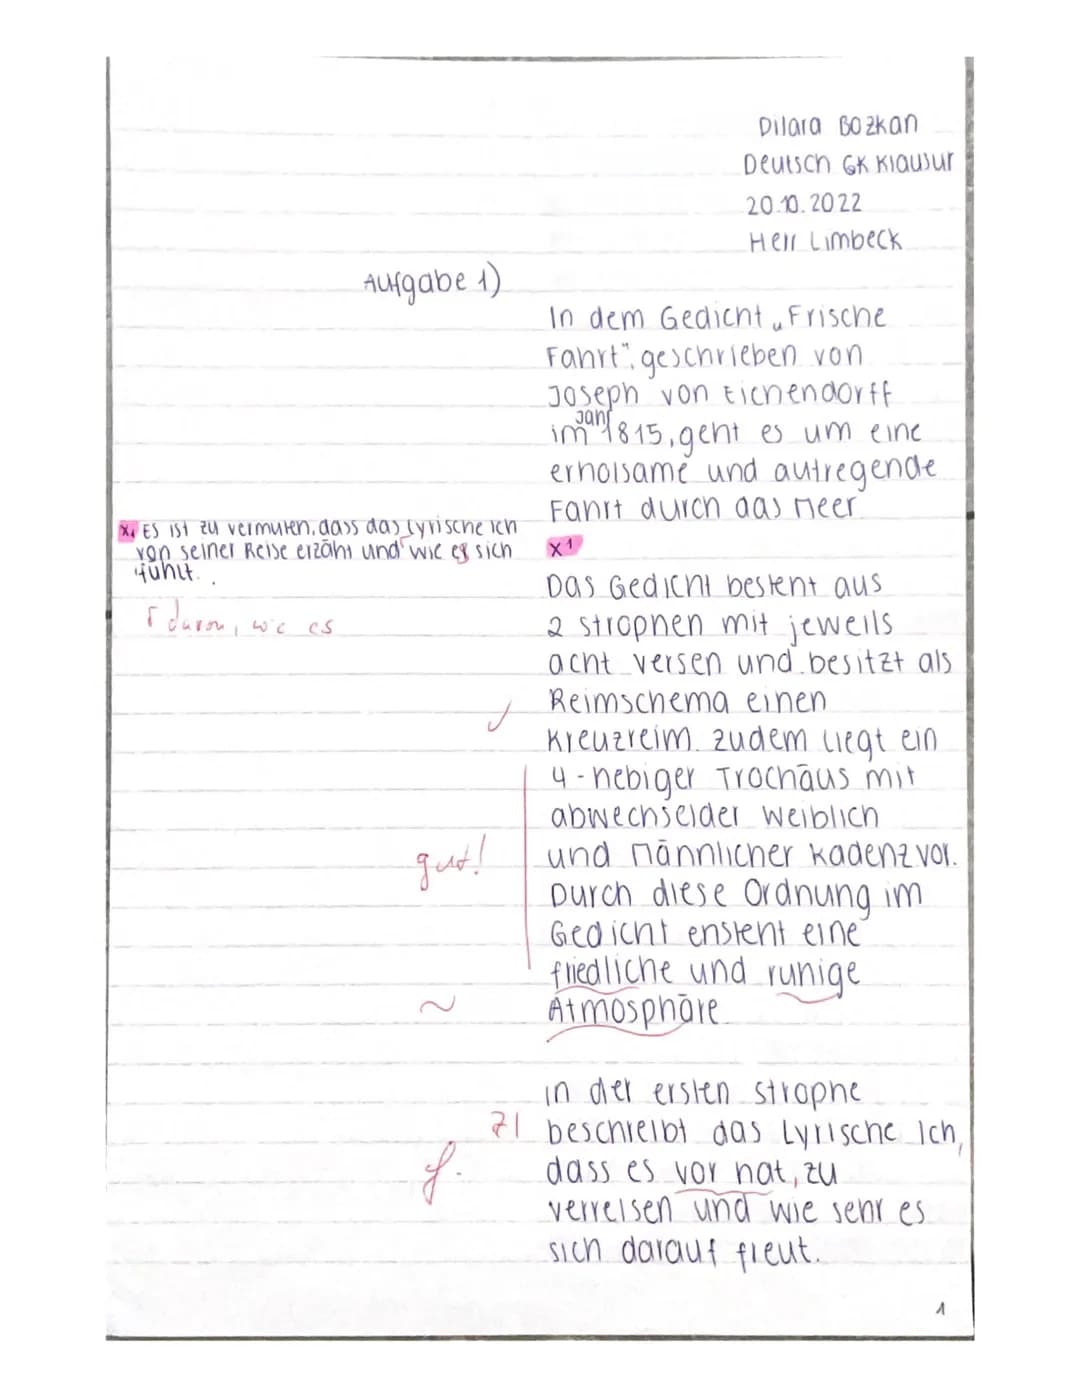 Dilara Bozkan
Deutsch GK Klausur
20.10.2022
Herr Limbeck
Aufgabe 1)
In dem Gedicht „Frische
Fahrt", geschrieben von
Joseph von Eichendorff
im Jahr 1815, geht es um eine
erholsame und aufregende
Fahrt durch das Meer.
x1 Es ist zu vermuten, dass das Lyrische Ich
von seiner Reise erzählt und wie es sich
fühlt.
x1
Γ davon, wie es
Das Gedicht besteht aus
2 Strophen mit jeweils
acht Versen und besitzt als
Reimschema einen
✓
Kreuzreim. Zudem liegt ein
4-hebiger Trochäus mit
abwechselder weiblich
gut!
und männlicher Kadenz vor.
Durch diese Ordnung im
Gedicht ensteht eine
friedliche und ruhige
~
Atmosphäre
in der ersten Strophe
beschreibt das Lyrische Ich,
dass es vor hat, zu
verreisen und wie sehr es
sich darauf freut.
1